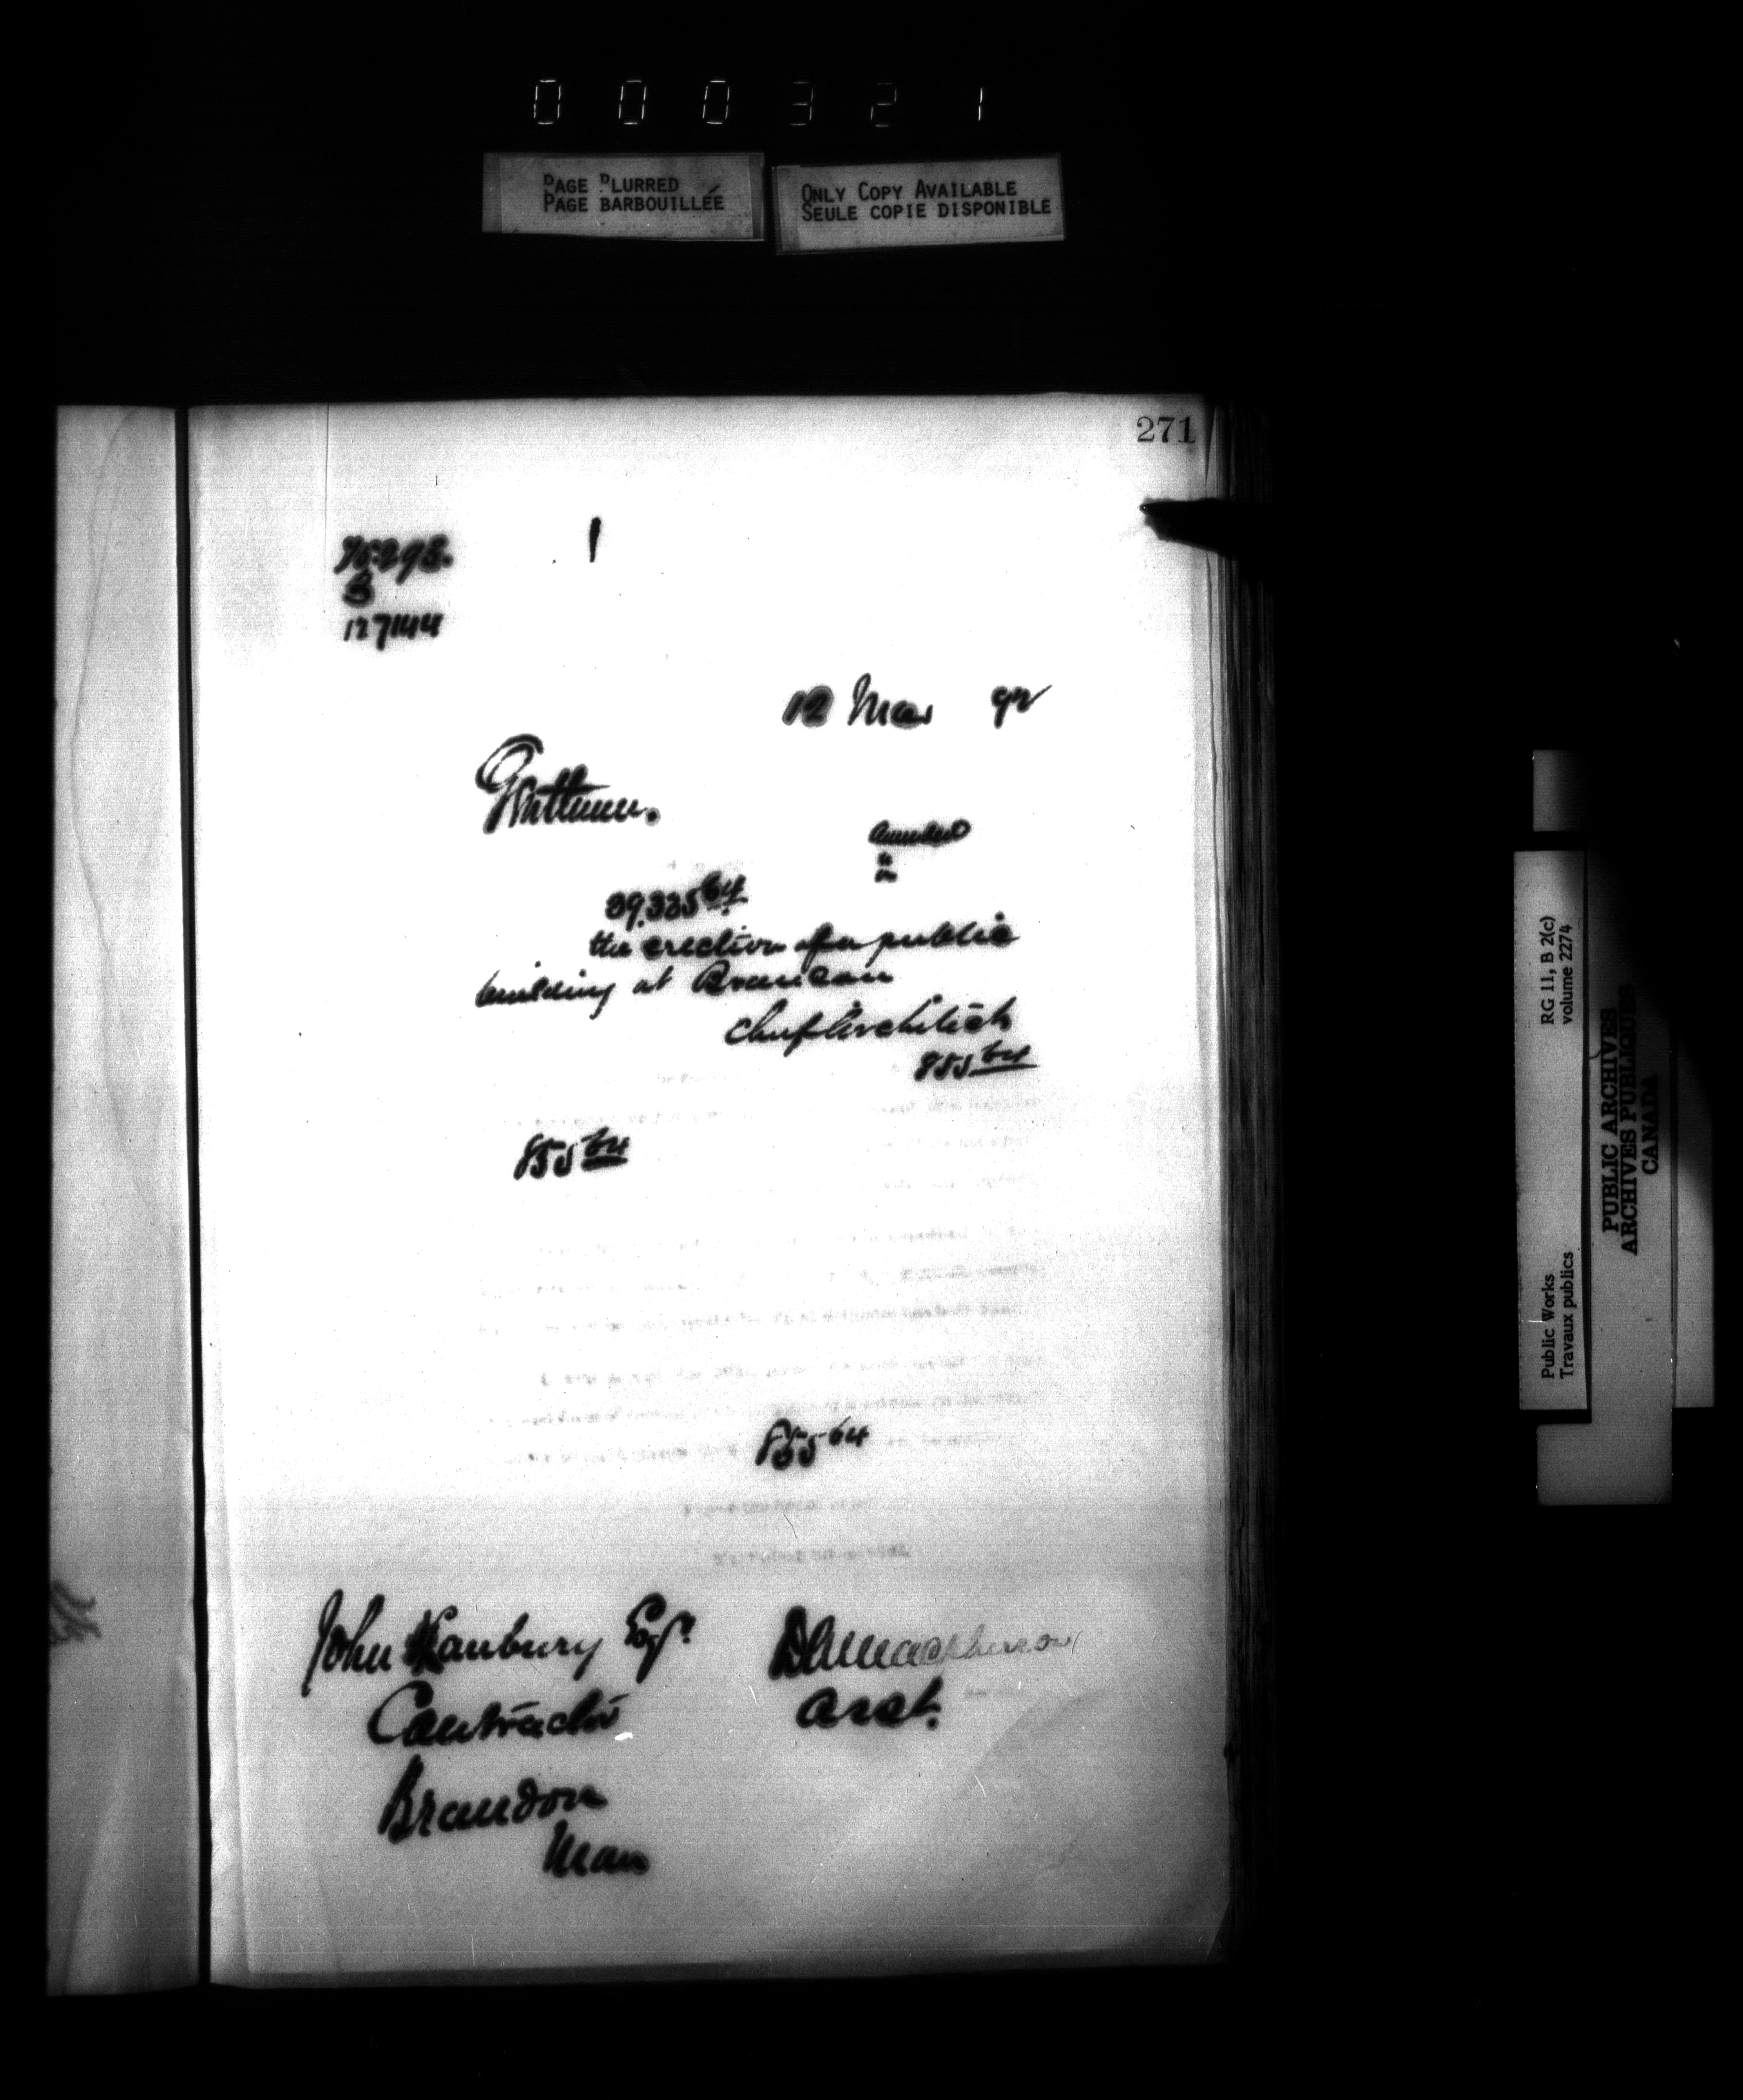 000321
PAGE BLURRED
PAGE BARBOUILLÉE
ONLY COPY AVAILABLE
SEULE COPIE DISPONIBLE
271
B
127144
12 Mar 92
Gentlemen.
"
39,335 64
the erection of a public
building at Brandon
Chief Architect
855 64
855 64
855 64
John Hanbury Esq.
Contractor
Brandon
Man
D Macpherson
Asst.
Public Works
Travaux publics
RG 11, B 2(c)
volume 2274
PUBLIC ARCHIVES
ARCHIVES PUBLIQUES
CANADA